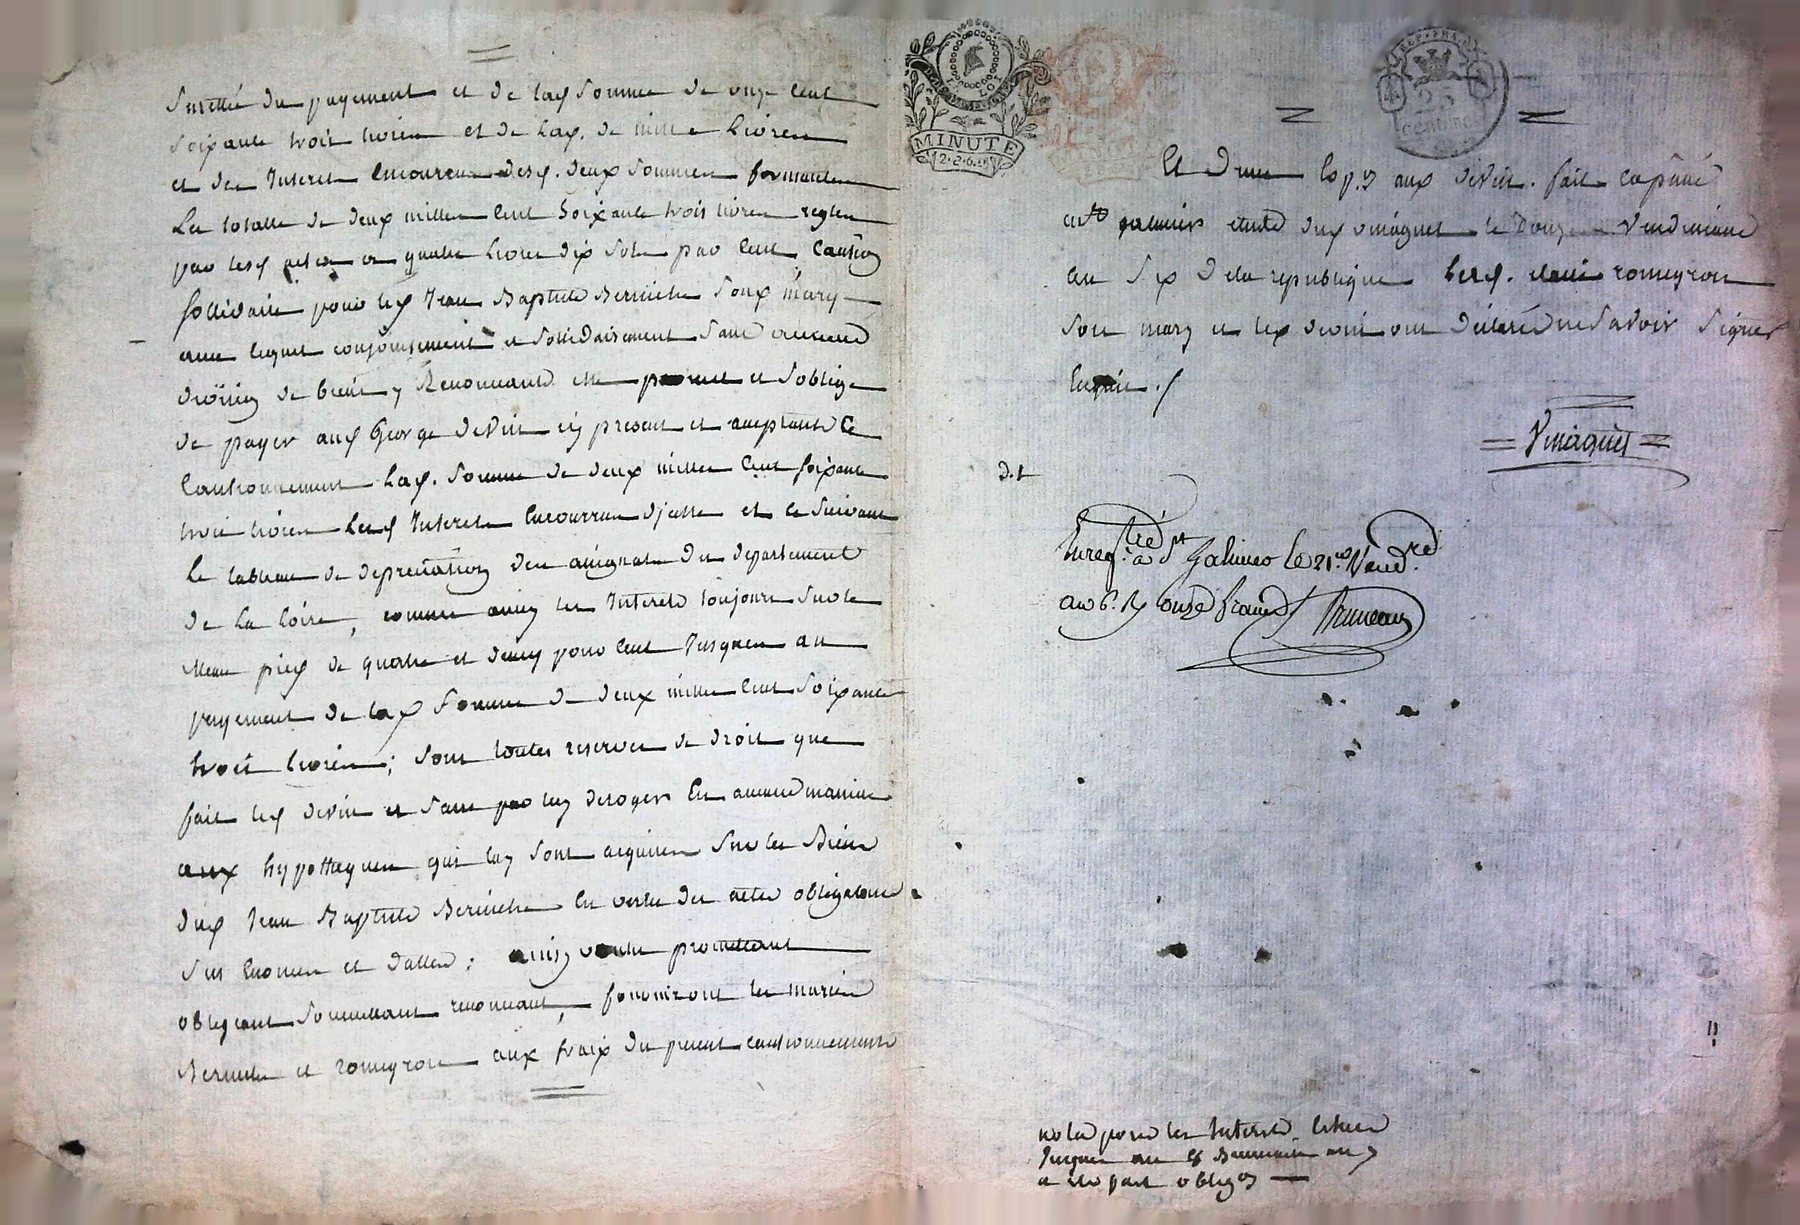 Surette du payement et de lad. Somme de onze Cent
Soixante trois livres et de Lad. de mille Livres
et des Interet Encourrus desd. deux Sommes formantes
La totalle de deux milles Cent Soixante trois livres reglés
par lesd. actes a quatre livres dix Sols par Cent Caution
Sollidaire pour led. Jean Baptiste Berniche Sond. mary
avec lequel conjointement et Sollidairement Sans aucune
division de biens y Renonceant elle promet et Soblige
de payer aud. George devint icy present et acceptant Ce
Cautionnement Lad. Somme de deux milles Cent Soixante
trois livres Lesd. Interets Encourrus dicelle et ce Suivant
Le tableau de depretiation des assignats du departement
de La Loire, comme aussy les Interets toujours Sur le
Meme pied de quatre et demy pour Cent Jusques au
payement de lad. Somme de deux milles Cent Soixante
trois livres; Sous toutes reserves de droit que
fait led. devint et Sans par luy deroger En aucune maniere
aux hypotheques qui luy Sont acquises Sur les Biens
dud. Jean Baptiste Berniche En vertu des actes obligatoires
Sus Enoncés et dattés; ainsy voulu promettant
obligeant Soumettant renonceant, fourniront les mariés
Berniche et romeyron aux fraix du present cautionnement
MINUTE
REP. FRA.
25
centimes
Et Dune Copy aux devint. fait et passé
a St galmier etude dud. vmaguet le Douze Vendemiaire
an Six De la republique Lesd. romeyron
Son mary et led. devint ont declaré ne Savoir Signer
Enquis ./.
Vmaguet
D. t
Enreg.tré a St Galmier le 21. Vend.re
an 6. R onze francs Bruneau
nota pour les Interets Echus
Jusques au Brumaire an
a été fait obligon